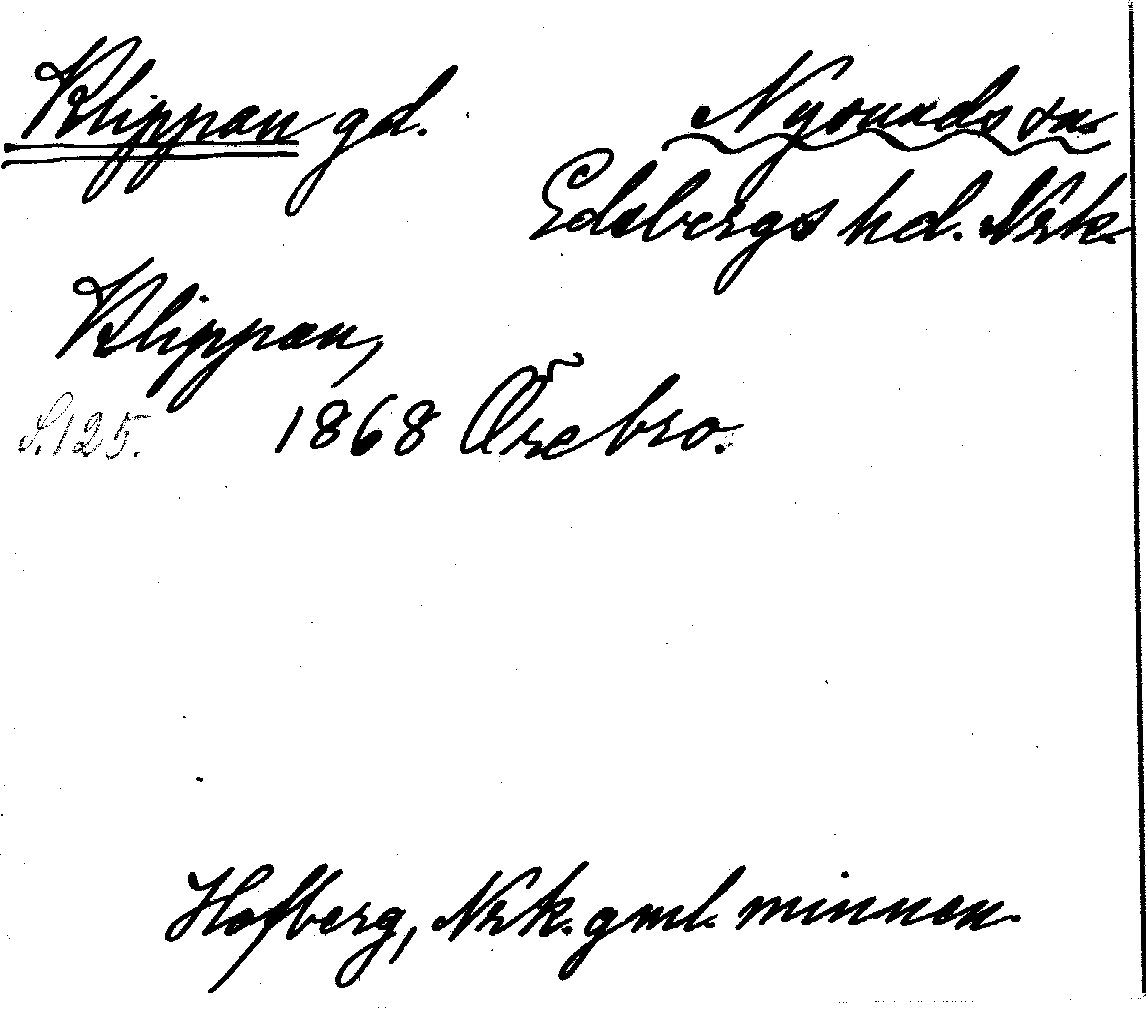 Klippan gd. Nysunds sn
Edsbergs hd. Nrk.
Klippan,
S.125. 1868 Örebro.
Hofberg, Nrk. gml. minnen.